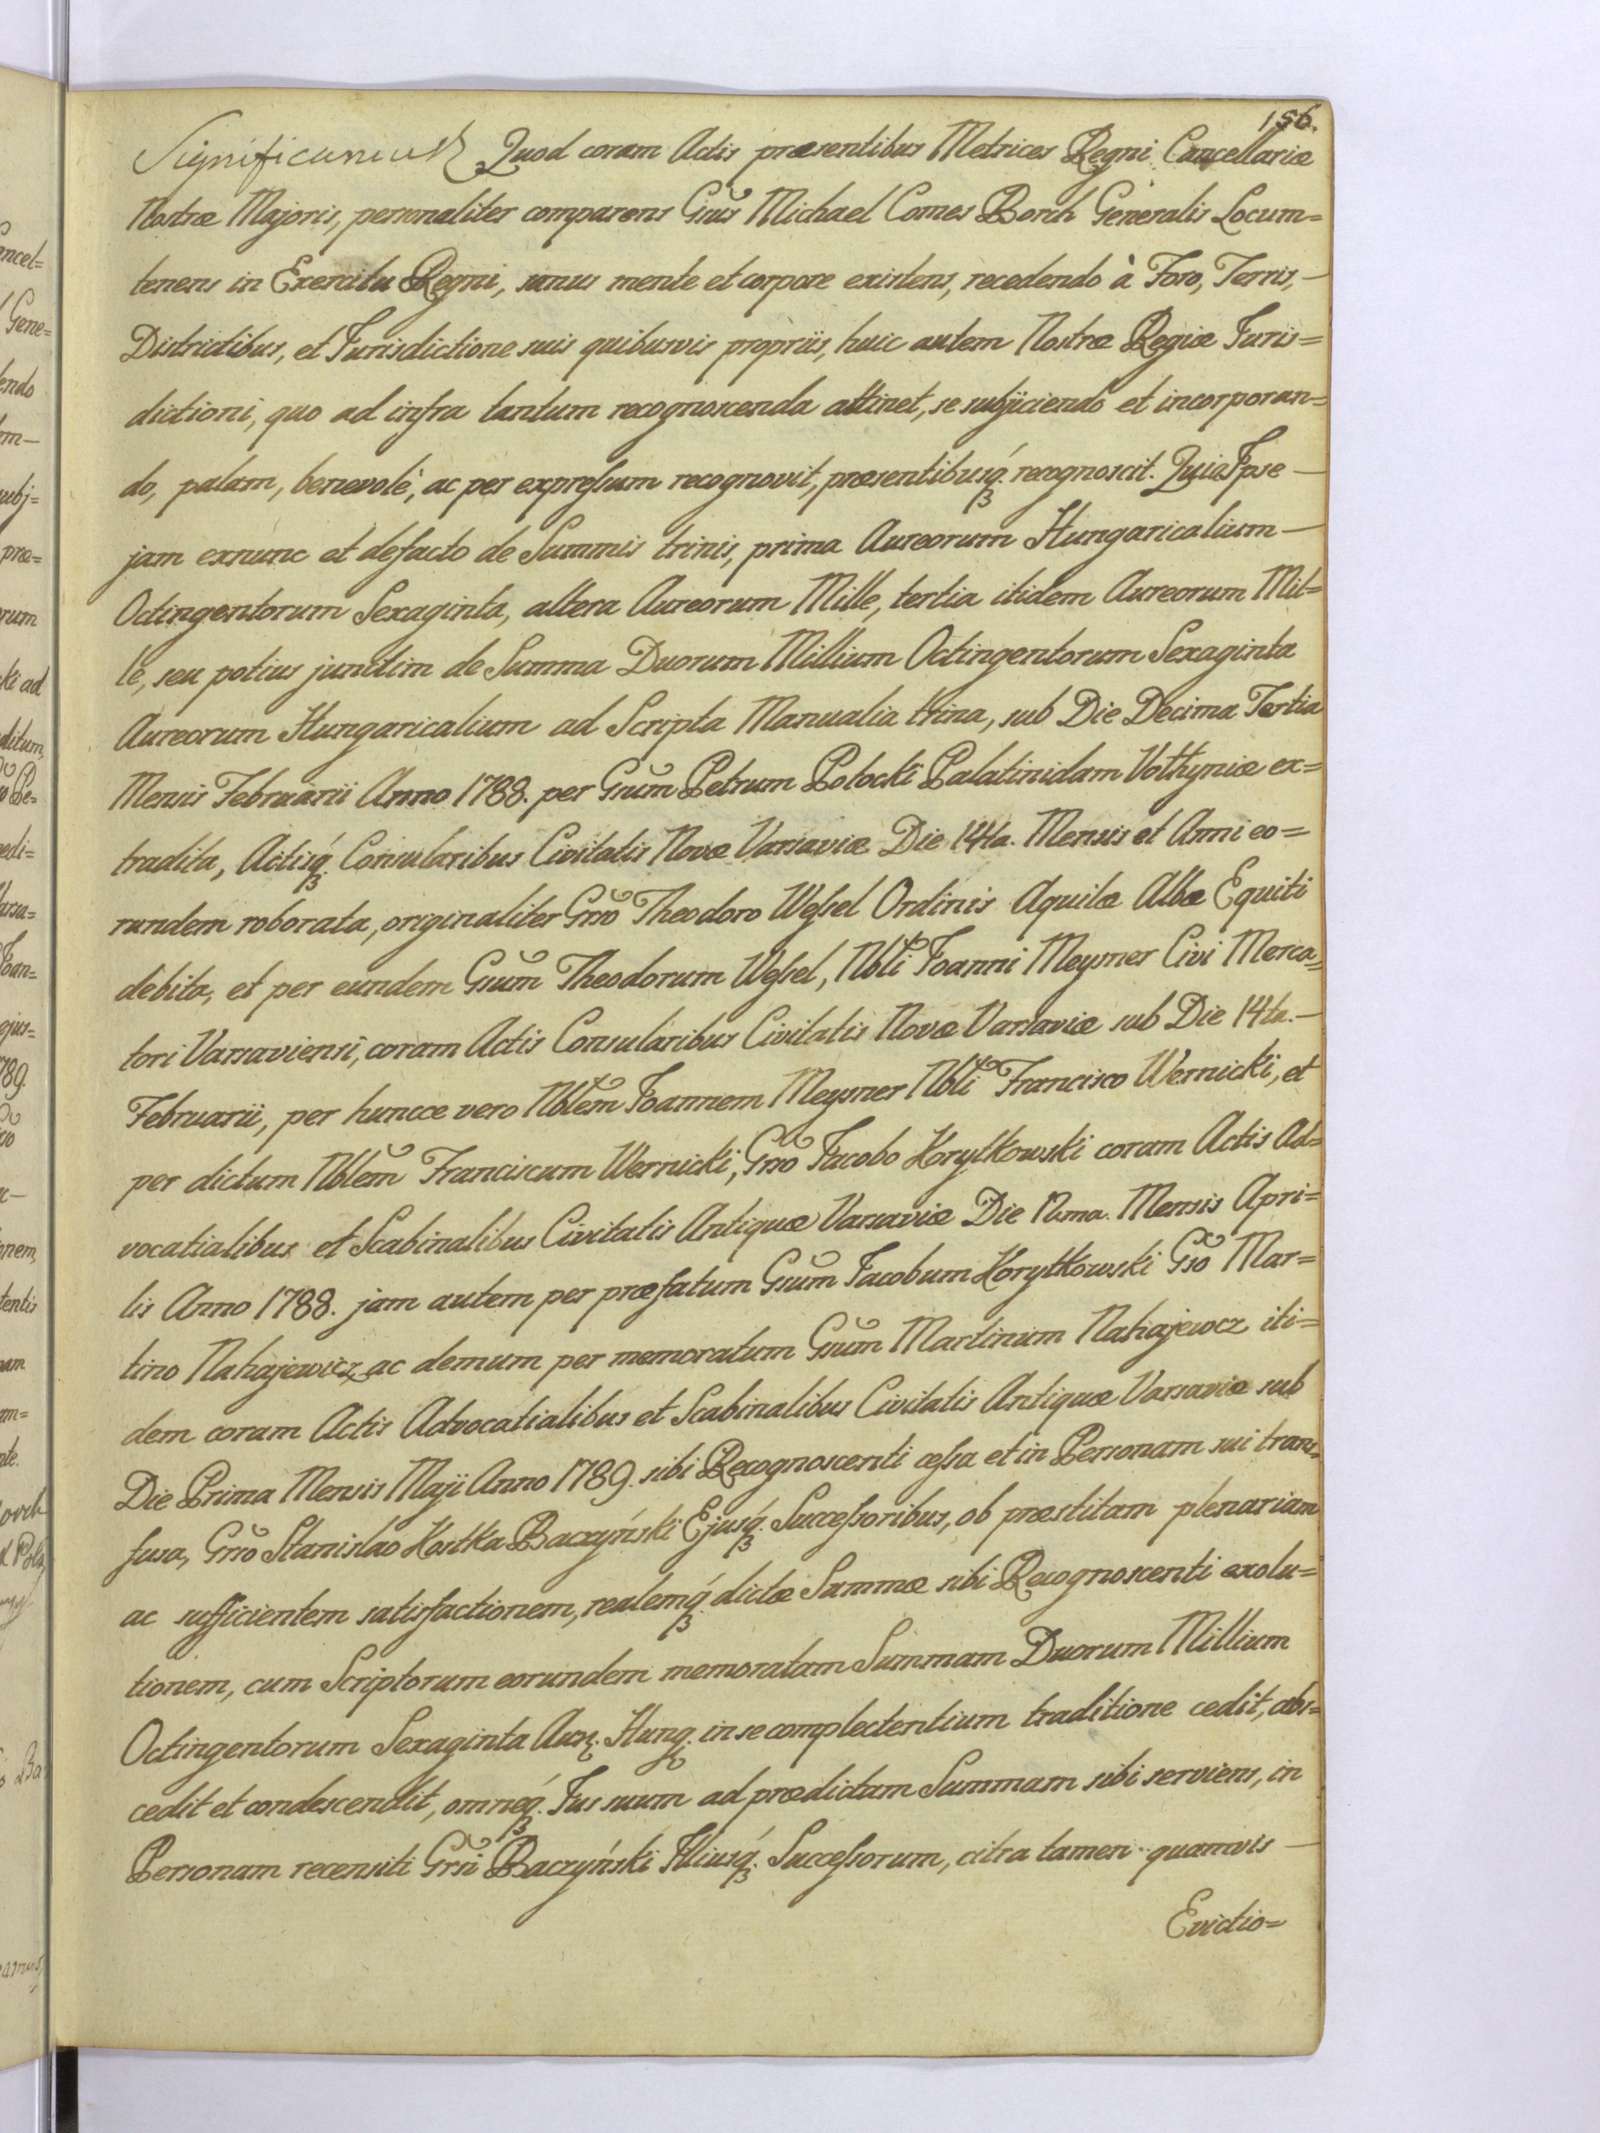 156.
Significamus Quod coram Actis præsentibus Metrices Regni Cancellariæ
Nostræ Majoris, personaliter comparens Gnũs Michael Comes Borch Generalis Locum=
tenens in Exercitu Regni, sanus mente et corpore existens, recedendo à Foro, Terris,—
Districtibus, et Jurisdictione suis quibusvis propriis, huic autem Nostræ Regiæ Juris=
dictioni, quo ad infra tantum recognoscenda attinet, se subjiciendo et incorporan=
do, palam, benevolè, ac per expreſsum recognovit, præsentibusq́ꝫ recognoscit. Quia Ipse—
jam exnunc et defacto de Summis trinis, prima Aureorum Hungaricalium—
Octingentorum Sexaginta, altera Aureorum Mille, tertia itidem Aureorum Mil=
le, seu potius junctim de Summa Duorum Millium Octingentorum Sexaginta
Aureorum Hungaricalium ad Scripta Manualia trina, sub Die Decima Tertia
Mensis Februarii Anno 1788. per Gnũm Petrum Potocki Palatinidam Vołhyniæ ex=
tradita, Actisq́ꝫ Consularibus Civitatis Novæ Varsaviæ Die 14ta. Mensis et Anni eo=
rundem roborata, originaliter Gnõ Theodoro Weſsel Ordinis Aquilæ Albæ Equiti
debita, et per eundem Gnũm Theodorum Weſsel, Nbli Joanni Meysner Civi Merca=
tori Varsaviensi, coram Actis Consularibus Civitatis Novæ Varsaviæ sub Die 14ta.—
Februarii, per huncce vero Nblem Joannem Meysner Nbli Francisco Wernicki, et
per dictum Nblem Franciscum Wernicki, Gnõ Jacobo Korytkowski coram Actis Ad=
vocatialibus et Scabinalibus Civitatis Antiquæ Varsaviæ Die 12ma. Mensis Apri=
lis Anno 1788. jam autem per præfatum Gnũm Jacobum Korytkowski Gnõ Mar=
tino Nahajewicz, ac demum per memoratum Gnũm Martinum Nahajewicz iti=
dem coram Actis Advocatialibus et Scabinalibus Civitatis Antiquæ Varsaviæ sub
Die Prima Mensis Maji Anno 1789. sibi Recognoscenti ceſsa et in Personam sui trans=
fusa, Gnõ Stanislao Kostka Baczyński Ejusq́ꝫ Succeſsoribus, ob præstitam plenariam
ac sufficientem satisfactionem, realemq́ꝫ dictæ Summæ sibi Recognoscenti exolu=
tionem, cum Scriptorum eorundem memoratam Summam Duorum Millium
Octingentorum Sexaginta Aur. Hung. in se complectentium traditione cedit, abs=
cedit et condescendit, omneq́ꝫ Jus suum ad prædictam Summam sibi serviens, in
Personam recensiti Gnĩ Baczyński Illiusq́ꝫ Succeſsorum, citra tamen quamvis—
Evictio=